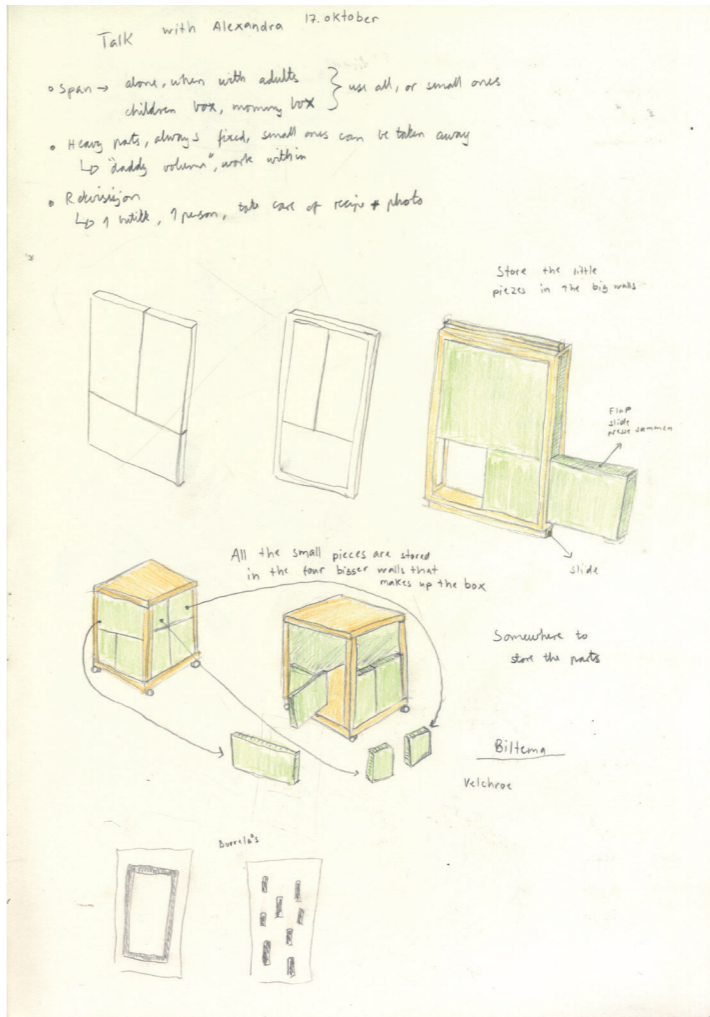 Talk with Alexandra 17. oktober
• Span → alone, when with adults
children box, mommy box
} use all, or small ones
• Heavy parts, always fixed, small ones can be taken away
↳ "daddy volume", work within
• Rdvissjon
↳ 1 butikk, 1 person, take care of recipe + photo
Store the little
piezes in the big walls
Flap
slide
sammen
slide
All the small pieces are stored
in the four bigger walls that
makes up the box
Somewhere to
store the parts
Biltema
Velchroe